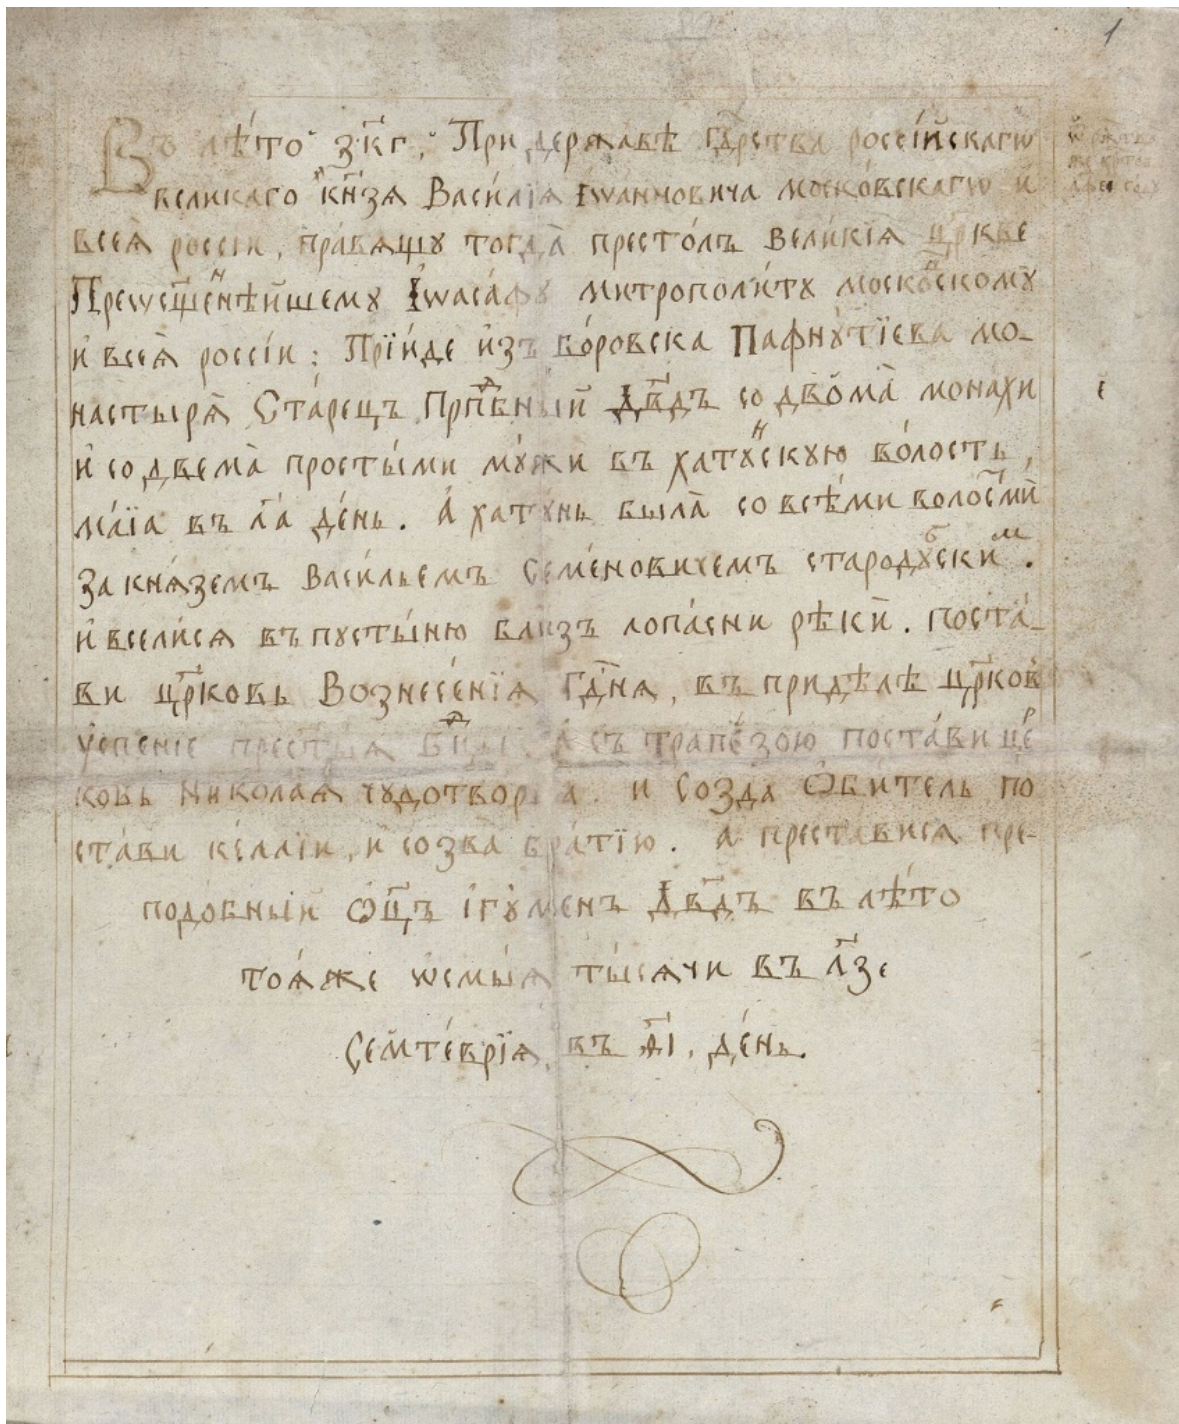 1
Въ лѣ́то ҂з҃кг, При державѣ гдⷭ҇рства россі́йскагѡ
великаго кн҃зя Васи́лїя Іѡа́нновича моско́вскагѡ и҆
всея̀ россі́и, пра́вящу тогда̀ престо́лъ вели́кїя цр҃кве
Преѡсщ҃еннѣ́йшему Іѡаса́фу митрополи́ту моско́вскому
и҆ всея̀ россі́и: Прїи́де и҆зъ бо́ровска Пафну́тїева мо-
настыря̀ Ста́рецъ Прпⷣбный Дв҃дъ со двома̀ монахи
и҆ со двема̀ просты́ми му́жи въ хату́нскую во́лость,
ма́їа въ л҃а де́нь. А҆ хату́нь была̀ со всѣ́ми волостⷭ҇мѝ
за кня́земъ Васи́льемъ Семе́новичемъ стародꙋбскимъ.
и҆ всели́ся въ пусты́ню близъ лопа́сни рѣкѝ. поста́-
ви цр҃ковь Вознесе́нїя Гдⷭ҇ня, въ придѣ́лѣ цр҃ковь
ᲂу҆спе́нїе прест҃ы́я Бц҃ы. А҆ съ трапе́зою поста́ви це́р
ковь Никола́я чудотво́рца. и Созда̀ Ѻ҆би́тель по
ста́ви ке́ллїи, и҆ созва̀ бра́тїю. А҆ преста́вися пре-
подо́бный Ѻ҆ц҃ъ і҆гу́менъ Дв҃дъ въ лѣ́то
тоя́же ѻ҆смы́я ты́сячи въ л҃зе
Семте́врїя, въ ѳ҃і. де́нь.